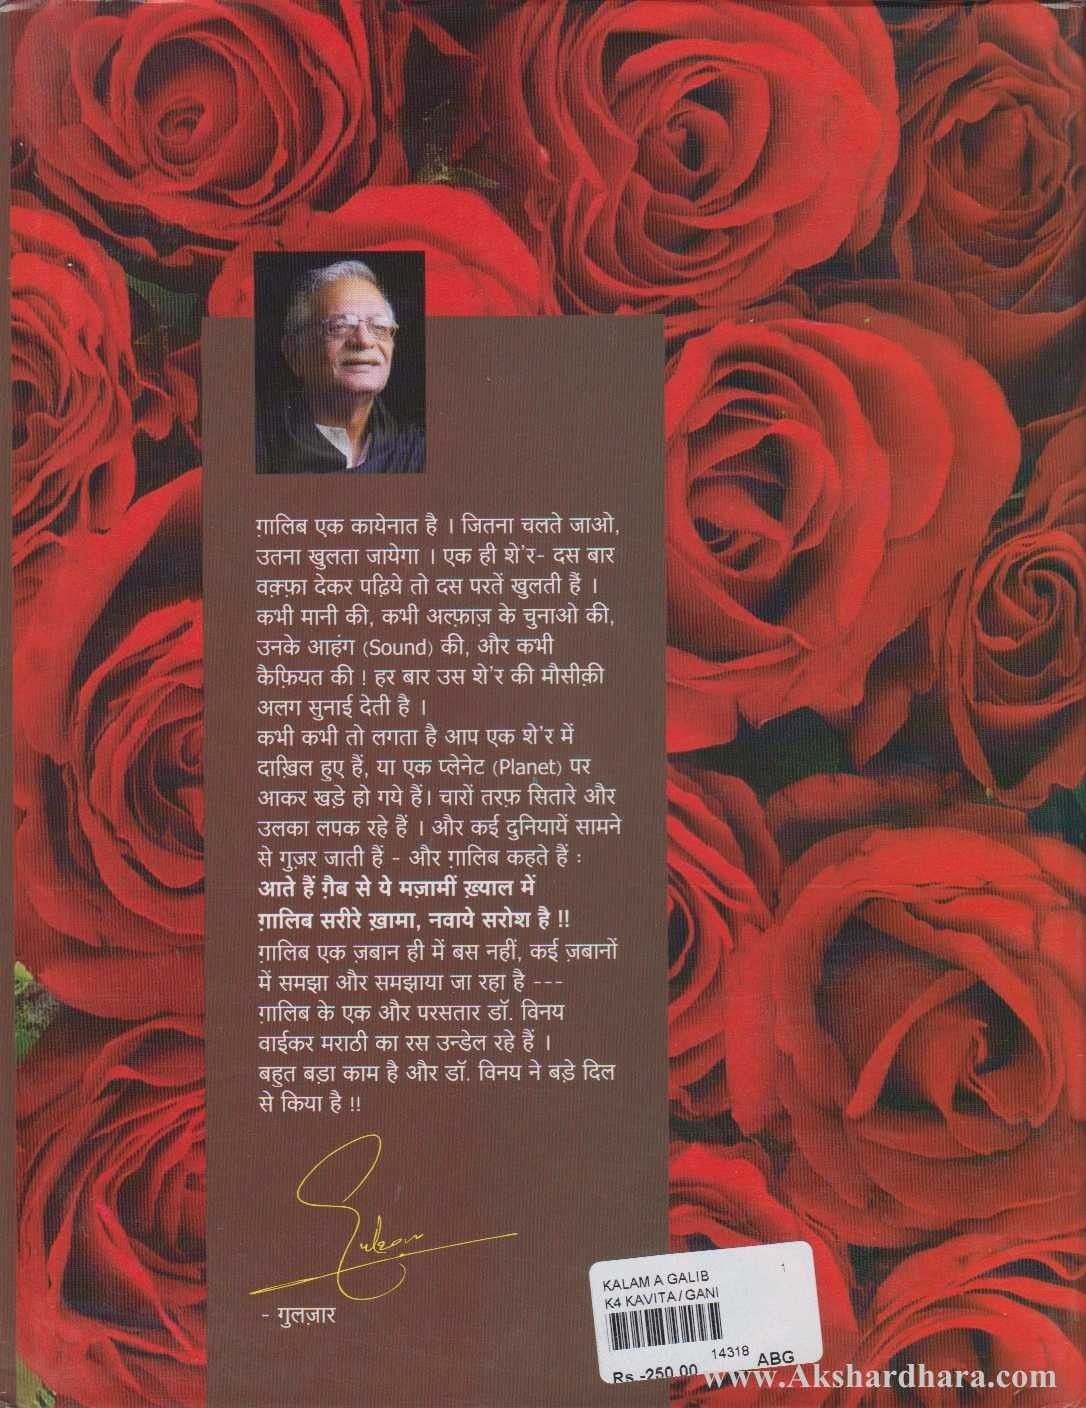 ग़ालिब एक कायेनात है । जितना चलते जाओ,
उतना खुलता जायेगा । एक ही शे'र- दस बार
वक़्फ़ा देकर पढ़िये तो दस परतें खुलती हैं ।
कभी मानी की, कभी अल्फ़ाज़ के चुनाओ की,
उनके आहंग (Sound) की, और कभी
कैफ़ियत की ! हर बार उस शे'र की मौसीक़ी
अलग सुनाई देती है ।
कभी कभी तो लगता है आप एक शे'र में
दाख़िल हुए हैं, या एक प्लेनेट (Planet) पर
आकर खड़े हो गये हैं। चारों तरफ़ सितारे और
उलका लपक रहे हैं । और कई दुनियायें सामने
से गुज़र जाती हैं - और ग़ालिब कहते हैं :
आते हैं ग़ैब से ये मज़ामीं ख़्याल में
ग़ालिब सरीरे ख़ामा, नवाये सरोश है !!
ग़ालिब एक ज़बान ही में बस नहीं, कई ज़बानों
में समझा और समझाया जा रहा है ---
ग़ालिब के एक और परसतार डॉ. विनय
वाईकर मराठी का रस उन्डेल रहे हैं ।
बहुत बड़ा काम है और डॉ. विनय ने बड़े दिल
से किया है !!
Gulzar
- गुलज़ार
KALAM A GALIB 1
K4 KAVITA / GANI
14318 ABG
Rs.-250.00
www.Akshardhara.com